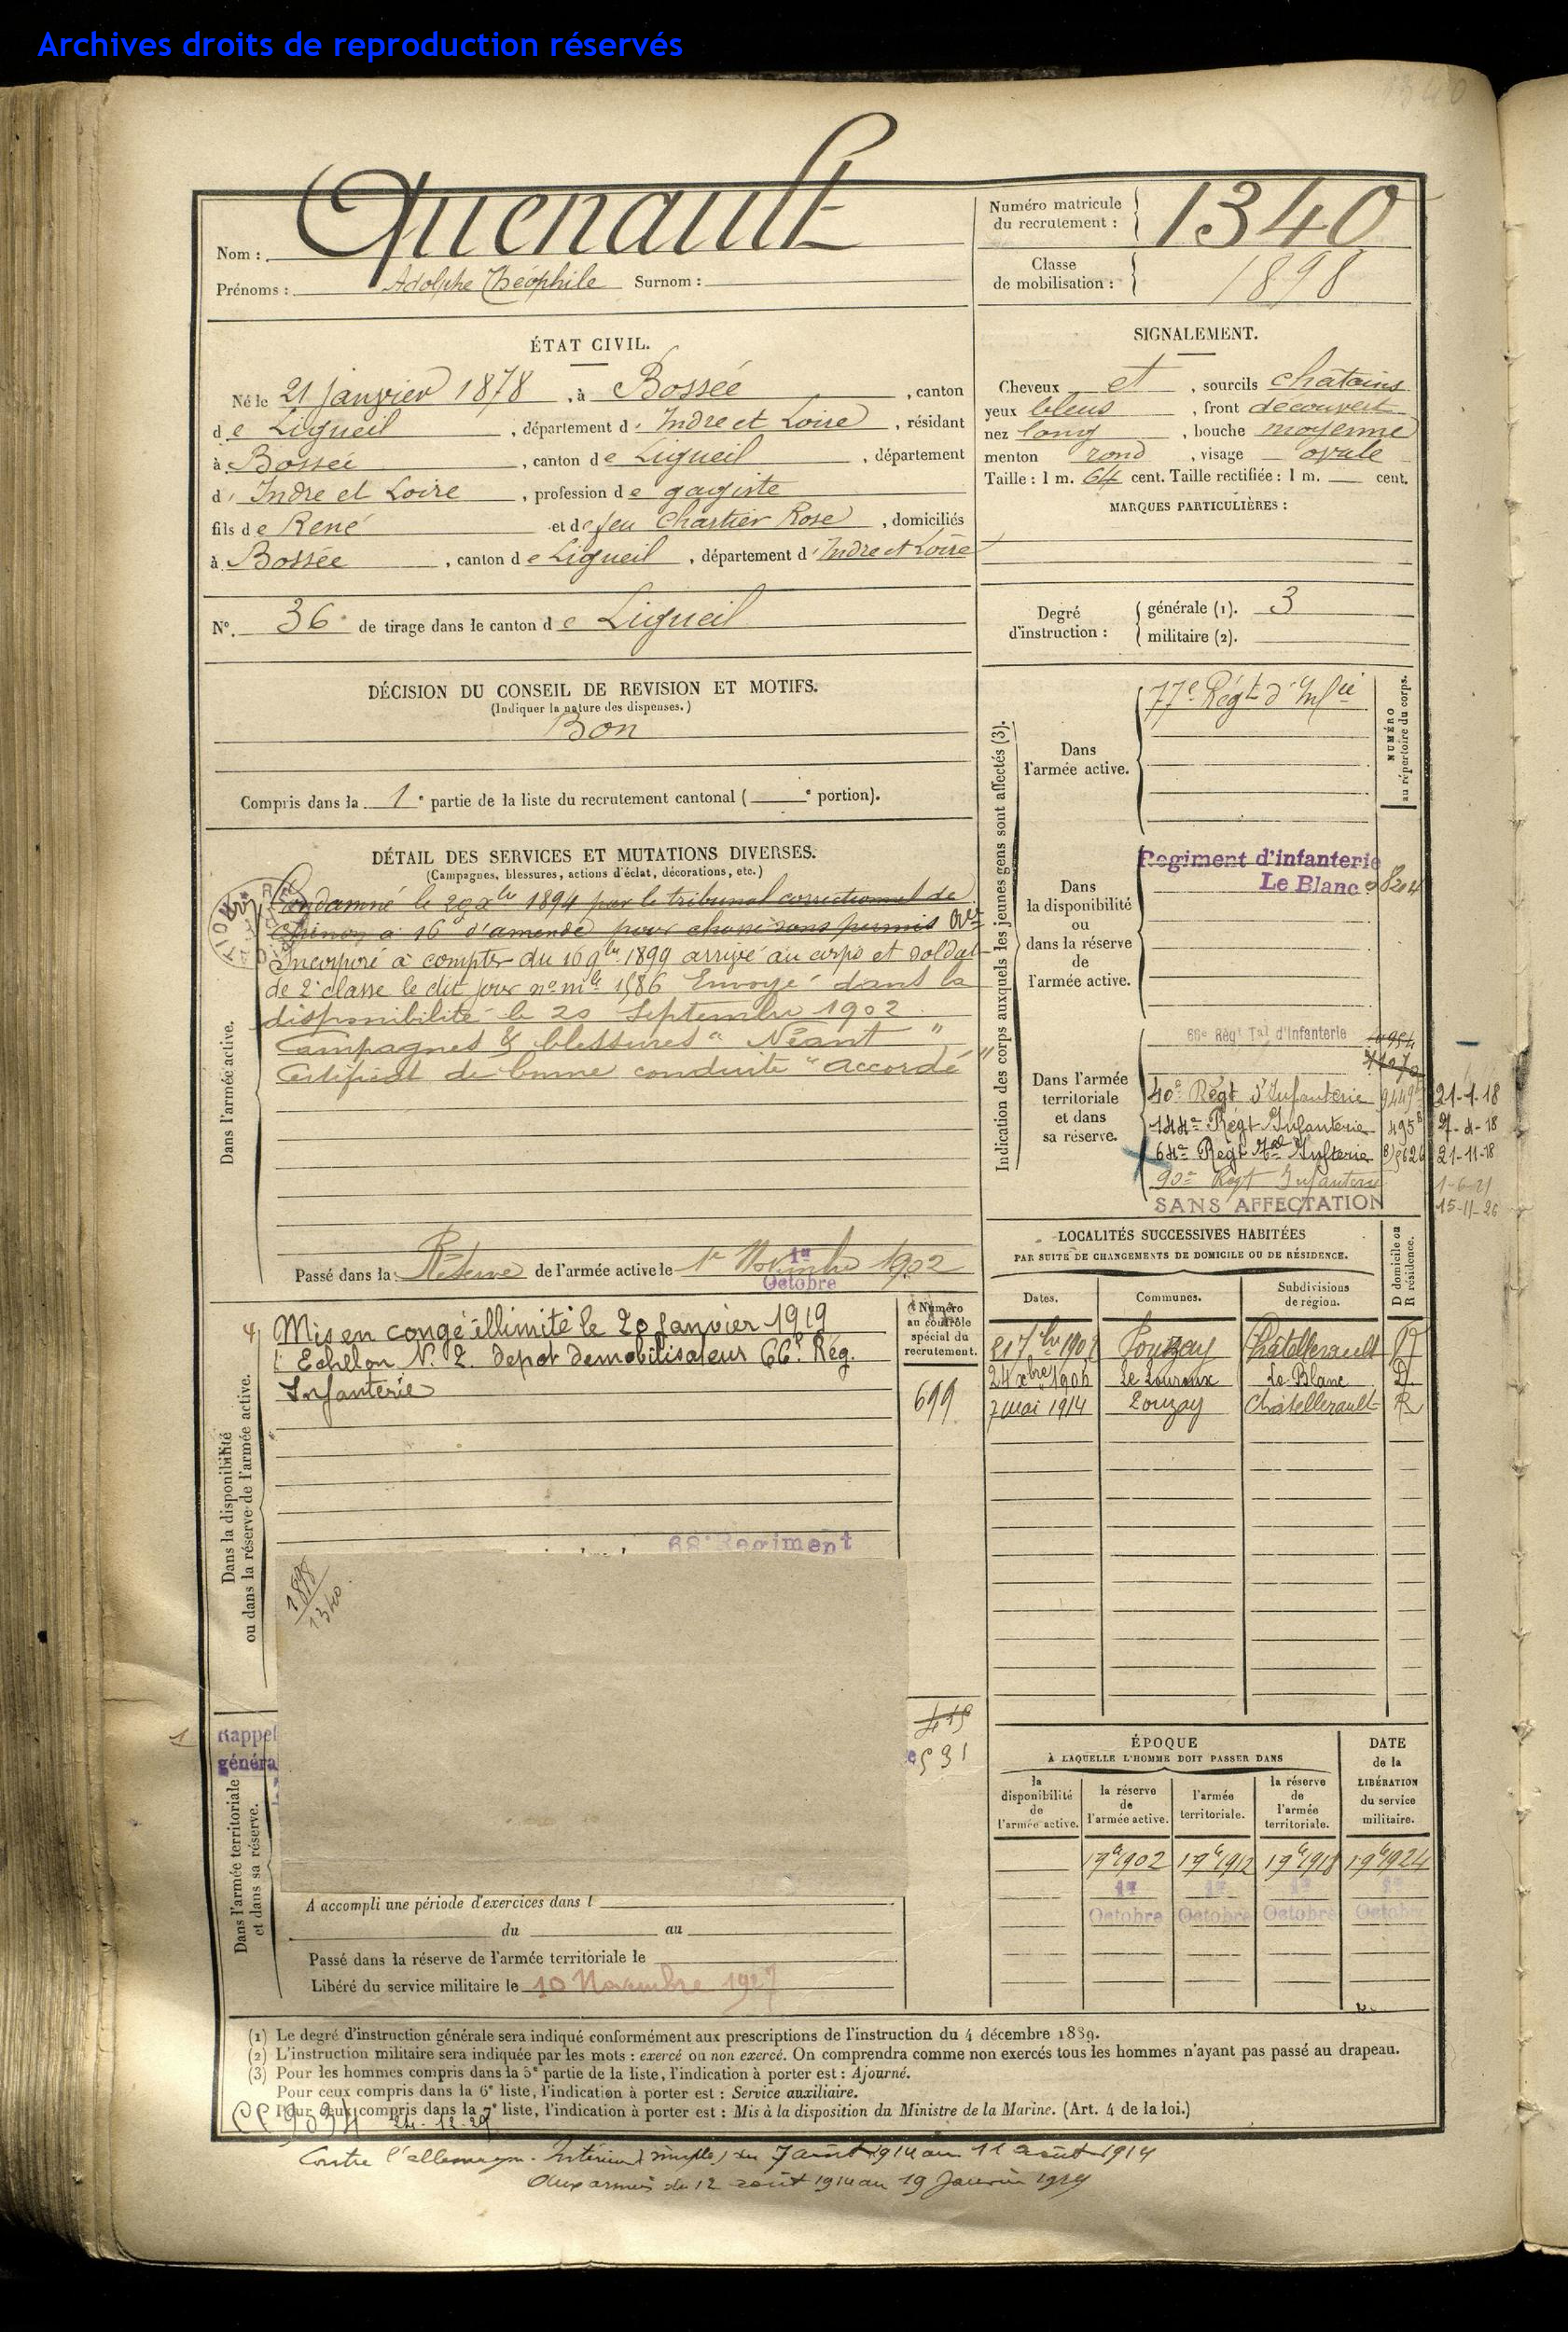 Archives droits de reproduction réservés
Nom : Quenault
Prénoms : Adolphe Théophile Surnom :
Numéro matricule du recrutement : 1340
Classe de mobilisation : 1898
ÉTAT CIVIL.
Né le 21 janvier 1878, à Bossée, canton
de Ligueil, département d' Indre et Loire, résidant
à Bossée, canton de Ligueil, département
d' Indre et Loire, profession de gagiste
fils de René et de feu Chartier Rose, domiciliés
à Bossée, canton de Ligueil, département d' Indre et Loire
N°. 36 de tirage dans le canton de Ligueil
SIGNALEMENT.
Cheveux et, sourcils châtains
yeux bleus, front découvert
nez long, bouche moyenne
menton rond, visage ovale
Taille : 1 m. 64 cent. Taille rectifiée : 1 m. cent.
MARQUES PARTICULIÈRES :
Degré d'instruction :
générale (1). 3
militaire (2).
DÉCISION DU CONSEIL DE REVISION ET MOTIFS.
(Indiquer la nature des dispenses.)
Bon
Compris dans la 1e partie de la liste du recrutement cantonal ( e portion).
DÉTAIL DES SERVICES ET MUTATIONS DIVERSES.
(Campagnes, blessures, actions d'éclat, décorations, etc.)
Dans l'armée active.
Condamné le 29 xbre 1894 par le tribunal correctionnel de
Chinon à 16 d'amende pour chasse sans permis
Incorporé à compter du 16 9bre 1899 arrivé au corps et soldat
de 2e classe le dit jour no mle 1586 Envoyé dans la
disponibilité le 20 Septembre 1902
Campagnes & blessures "Néant"
Certificat de bonne conduite "accordé"
Passé dans la Réserve de l'armée active le 1er Novembre 1902
1er Octobre
Indication des corps auxquels les jeunes gens sont affectés (3).
NUMÉRO au répertoire du corps.
Dans l'armée active.
77e Régt d'Infie
Dans la disponibilité ou dans la réserve de l'armée active.
Regiment d'infanterie
Le Blanc
Dans l'armée territoriale et dans sa réserve.
66e Régt Tal d'Infanterie
40e Régt d'Infanterie 21-1-18
144e Régt Infanterie
64e Régt Tal Infterie 21-11-18
90e Régt Infanterie 1-6-21
SANS AFFECTATION 15-11-26
LOCALITÉS SUCCESSIVES HABITÉES
PAR SUITE DE CHANGEMENTS DE DOMICILE OU DE RÉSIDENCE.
Dates. Communes. Subdivisions de région. D domicile ou R résidence.
Châtellerault R
24 xbre 1906 Le Louroux Le Blanc D.
7 Mai 1914 Louzay Châtellerault R
Dans la disponibilité ou dans la réserve de l'armée active.
Numéro au contrôle spécial du recrutement.
Mis en congé illimité le 20 Janvier 1919
Echelon N. 2. depot demobilisateur 66e Rég.
Infanterie
699
68e Regiment
1898
1340
Rappel
généra
Dans l'armée territoriale et dans sa réserve.
419
531
A accompli une période d'exercices dans l
du au
Passé dans la réserve de l'armée territoriale le
Libéré du service militaire le 10 Novembre 1927
ÉPOQUE
À LAQUELLE L'HOMME DOIT PASSER DANS
DATE de la LIBÉRATION du service militaire.
la disponibilité de l'armée active.
la réserve de l'armée active.
l'armée territoriale.
la réserve de l'armée territoriale.
1 9bre 1902 1 9bre 1912 1 9bre 1918 1 9bre 1924
1er 1er 1er 1er
Octobre Octobre Octobre Octobre
(1) Le degré d'instruction générale sera indiqué conformément aux prescriptions de l'instruction du 4 décembre 1889.
(2) L'instruction militaire sera indiquée par les mots : exercé ou non exercé. On comprendra comme non exercés tous les hommes n'ayant pas passé au drapeau.
(3) Pour les hommes compris dans la 5e partie de la liste, l'indication à porter est : Ajourné.
Pour ceux compris dans la 6e liste, l'indication à porter est : Service auxiliaire.
Pour ceux compris dans la 7e liste, l'indication à porter est : Mis à la disposition du Ministre de la Marine. (Art. 4 de la loi.)
Contre l'allemagne. Intérieur (simple) du 7 août 1914 au 11 août 1914
Aux armées du 12 août 1914 au 19 Janvier 1919